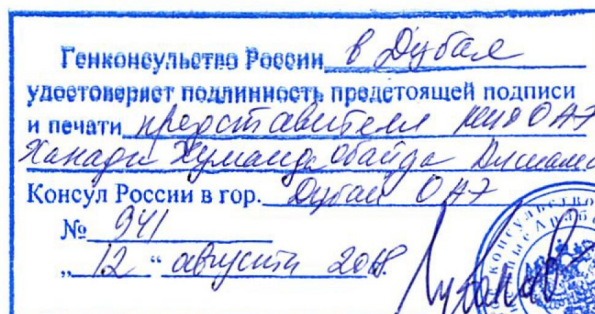 Генконсульство России в Дубае
удостоверяет подлинность предстоящей подписи
и печати представителя МИД ОАЭ
Ханади Хумаида Обайда
Консул России в гор. Дубай ОАЭ
№ 941
„ 12 “ августа 2018.